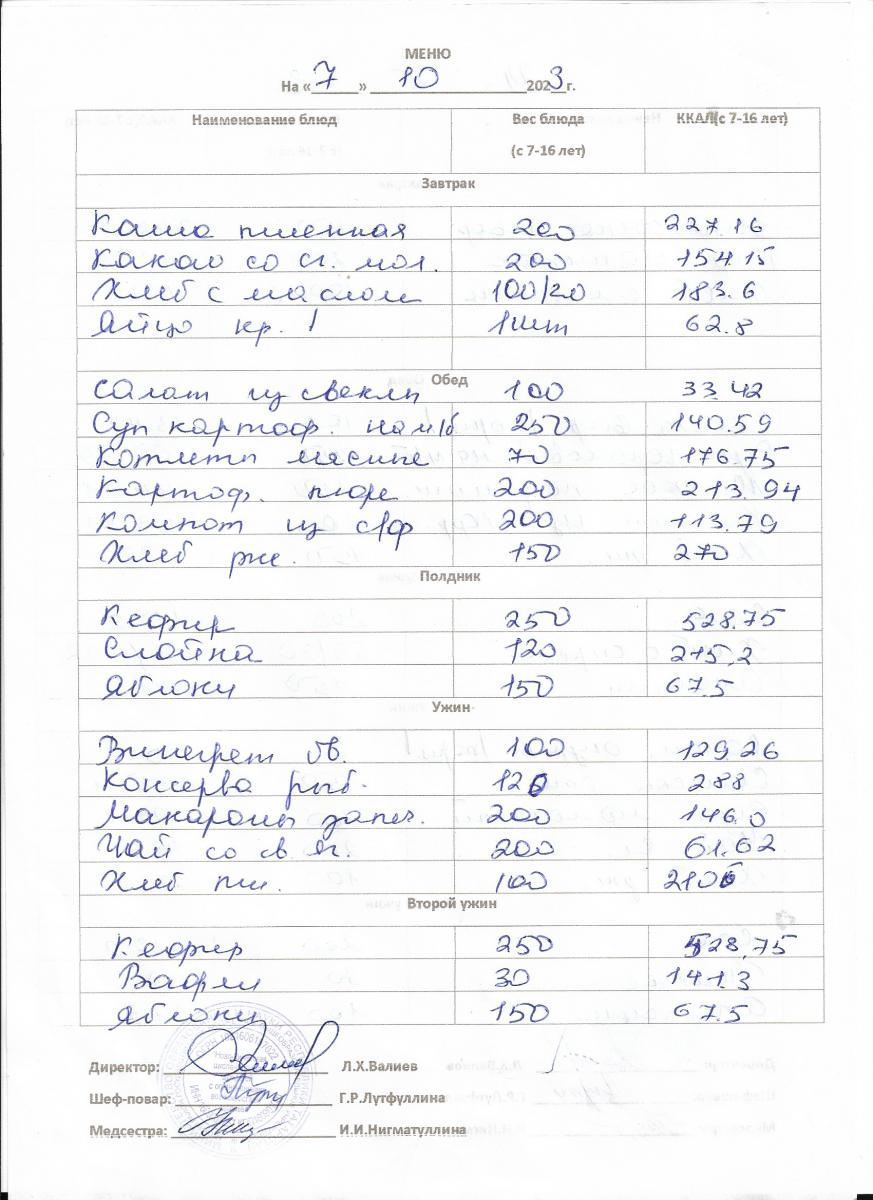 МЕНЮ
На «7» 10 2023 г.
Наименование блюд Вес блюда (с 7-16 лет) ККАЛ(с 7-16 лет)
Завтрак
Каша пшенная 200 227.16
Какао со сг. мол. 200 154.15
Хлеб с маслом 100/20 183.6
Яйцо кр. 1 1шт 62.8
Обед
Салат из свеклы 100 33.42
Суп картоф. на м/б 250 140.59
Котлеты мясные 70 176.75
Картоф. пюре 200 213.94
Компот из с/ф 200 113.79
Хлеб рж. 150 270
Полдник
Кефир 250 528.75
Слойка 120 215,2
Яблоки 150 67.5
Ужин
Винегрет ов. 100 129.26
Консерва рыб. 120 288
Макароны запеч. 200 146.0
Чай со св яг. 200 61.62
Хлеб пш. 100 210
Второй ужин
Кефир 250 528,75
Вафли 30 141.3
Яблоки 150 67.5
Директор: Л.Х.Валиев
Шеф-повар: Г.Р.Лутфуллина
Медсестра: И.И.Нигматуллина